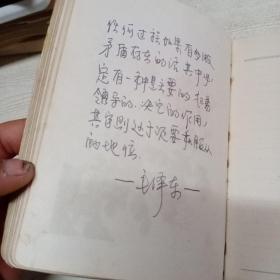 任何过程如果有多数
矛盾存在的话其中必
定有一种是主要的起着
领导的、决定的作用,
其它则处于次要和服从
的地位.
—毛泽东—